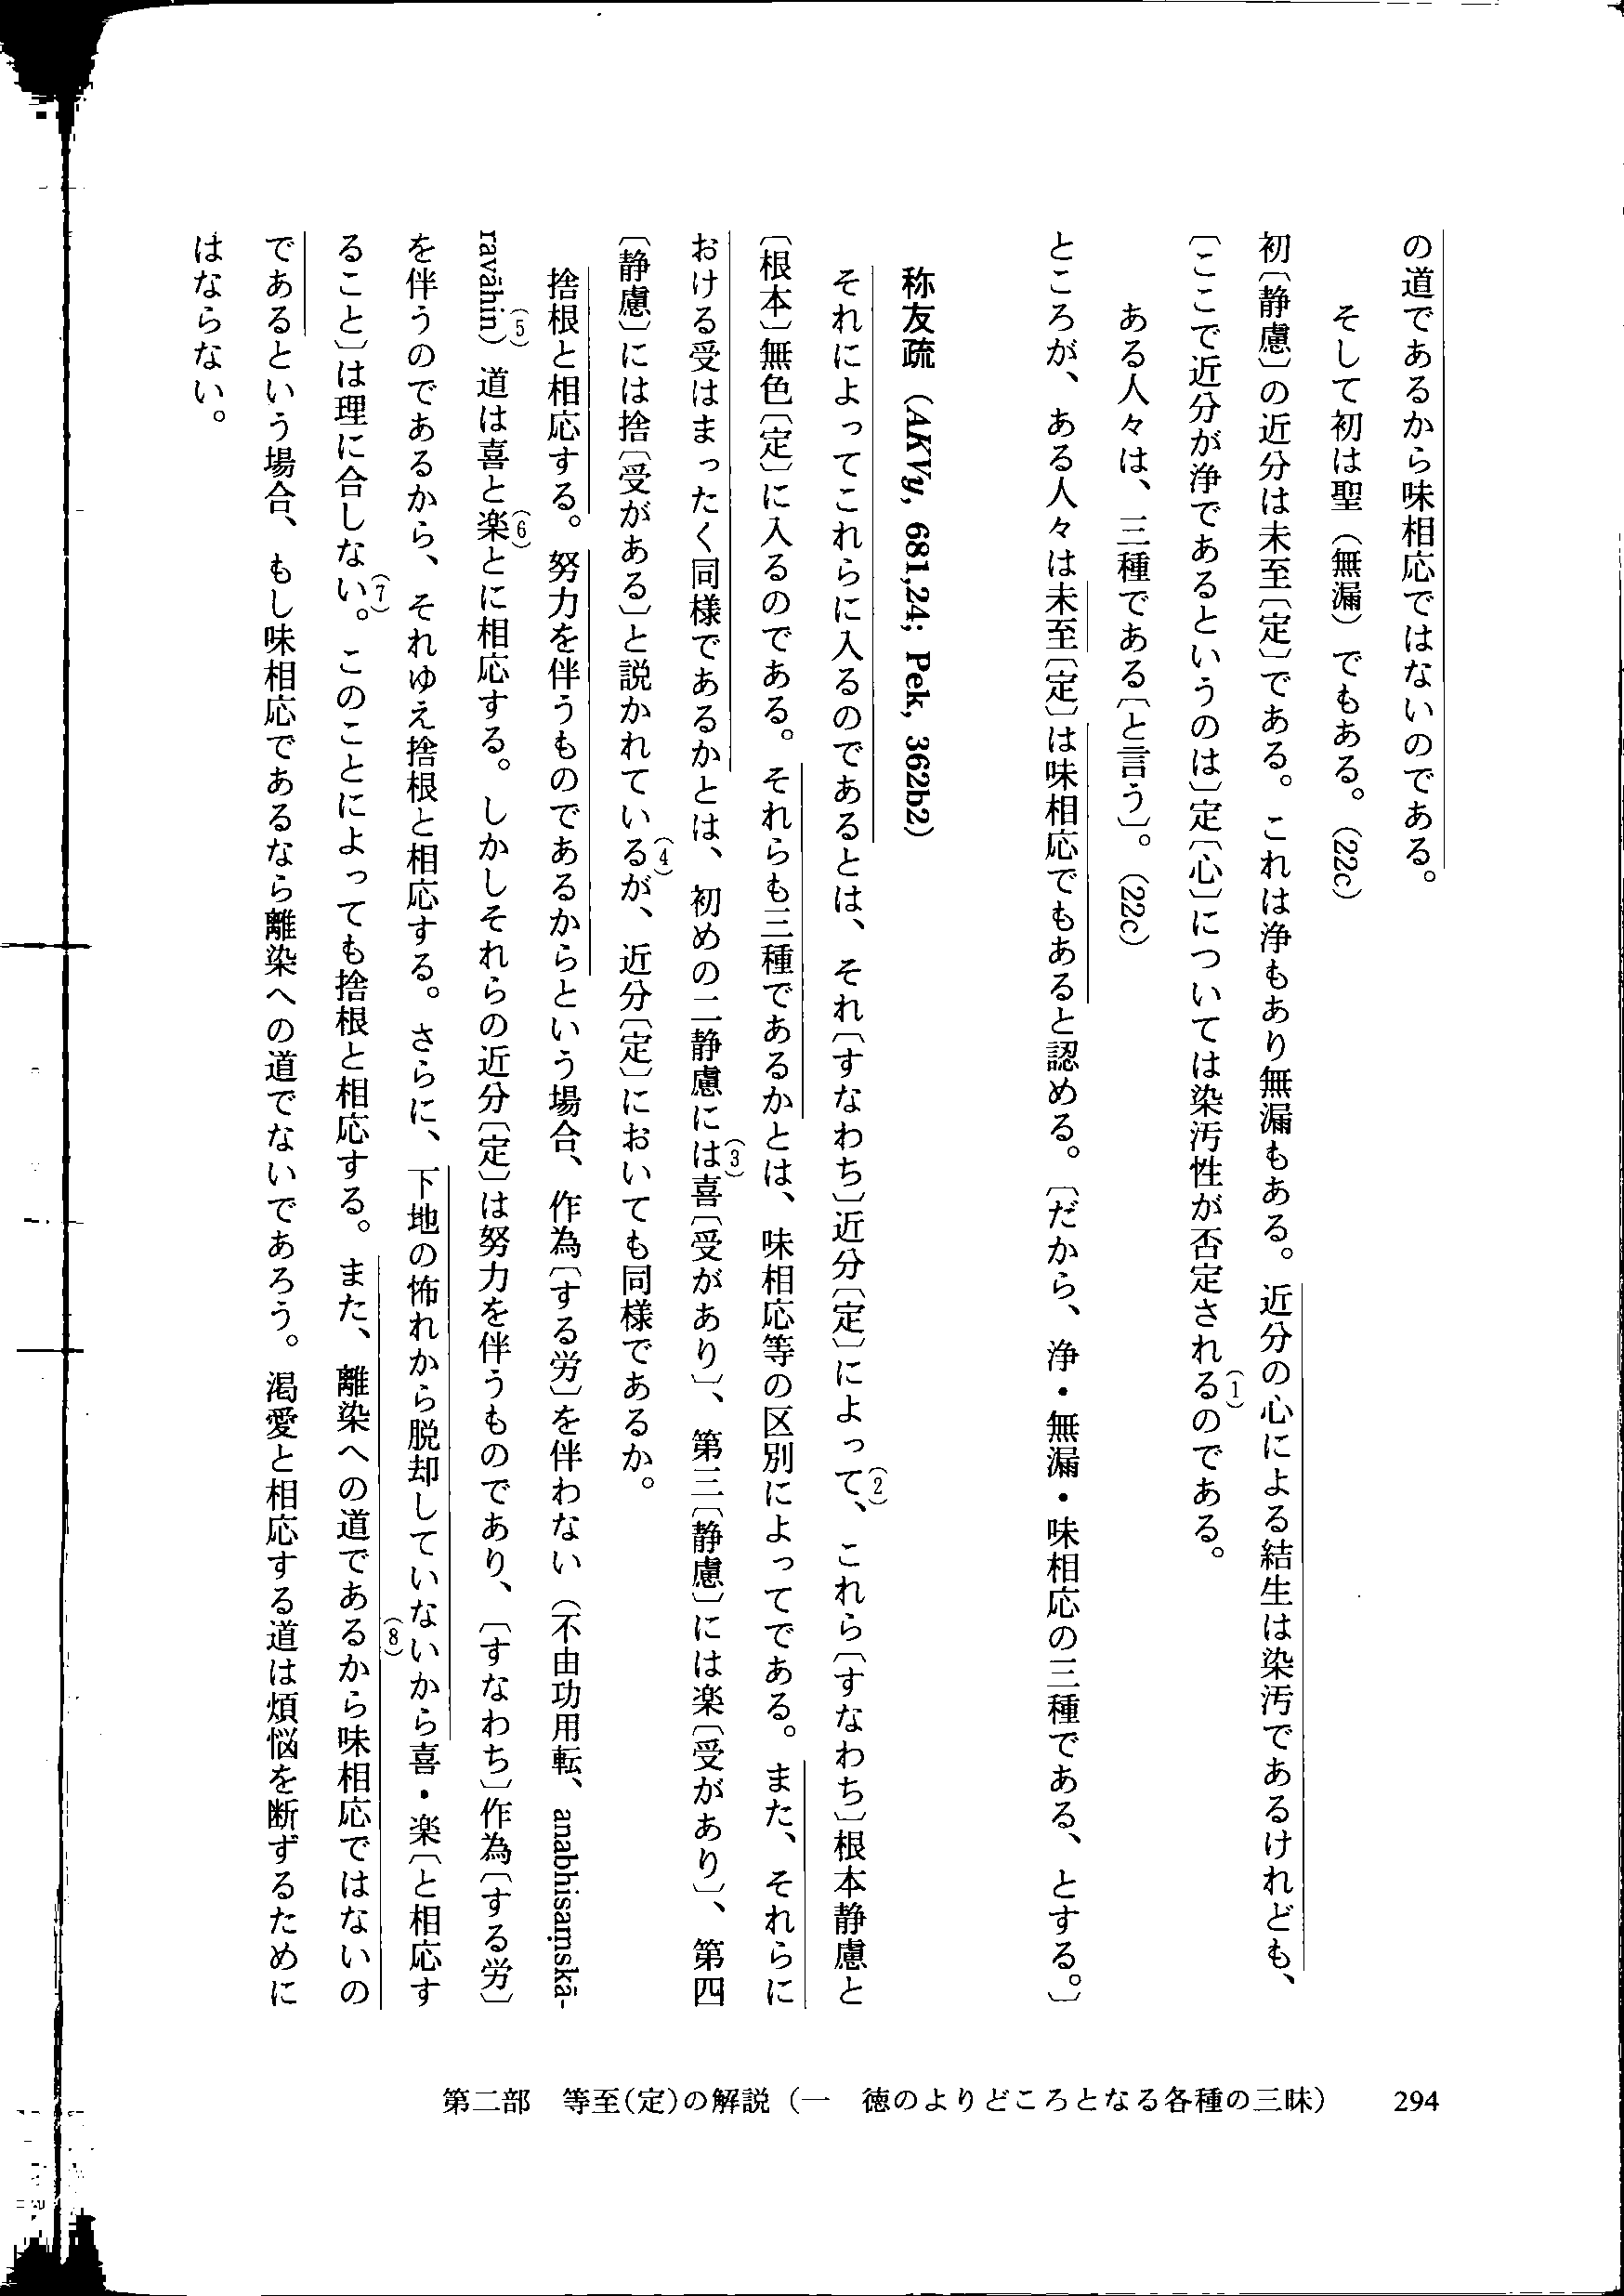 の道であるから味相応ではないのである。
そして初は聖（無漏）でもある。（22c）
初〔静慮〕の近分は未至〔定〕である。これは浄もあり無漏もある。近分の心による結生は染汚であるけれども、
〔ここで近分が浄であるというのは〕定〔心〕については染汚性が否定される(1)のである。
ある人々は、三種である〔と言う〕。（22c）
ところが、ある人々は未至〔定〕は味相応でもあると認める。〔だから、浄・無漏・味相応の三種である、とする。〕
称友疏（AKVy, 681,24; Pek, 362b2）
それによってこれらに入るのであるとは、それ〔すなわち〕近分〔定〕によって(2)、これら〔すなわち〕根本静慮と
〔根本〕無色〔定〕に入るのである。それらも三種であるかとは、味相応等の区別によってである。また、それらに
おける受はまったく同様であるかとは、初めの二静慮には(3)喜〔受があり〕、第三〔静慮〕には楽〔受があり〕、第四
〔静慮〕には捨〔受がある〕と説かれている(4)が、近分〔定〕においても同様であるか。
捨根と相応する。努力を伴うものであるからという場合、作為〔する労〕を伴わない（不由功用転、anabhisaṃskā-
ravāhin）(5)道は喜と楽(6)とに相応する。しかしそれらの近分〔定〕は努力を伴うものであり、〔すなわち〕作為〔する労〕
を伴うのであるから、それゆえ捨根と相応する。さらに、下地の怖れから脱却していないから喜・楽〔と相応す
ること〕は理に合しない(7)。このことによっても捨根と相応する。また、離染への道である(8)から味相応ではないの
であるという場合、もし味相応であるなら離染への道でないであろう。渇愛と相応する道は煩悩を断ずるために
はならない。
第二部　等至（定）の解説（一　徳のよりどころとなる各種の三昧）　294